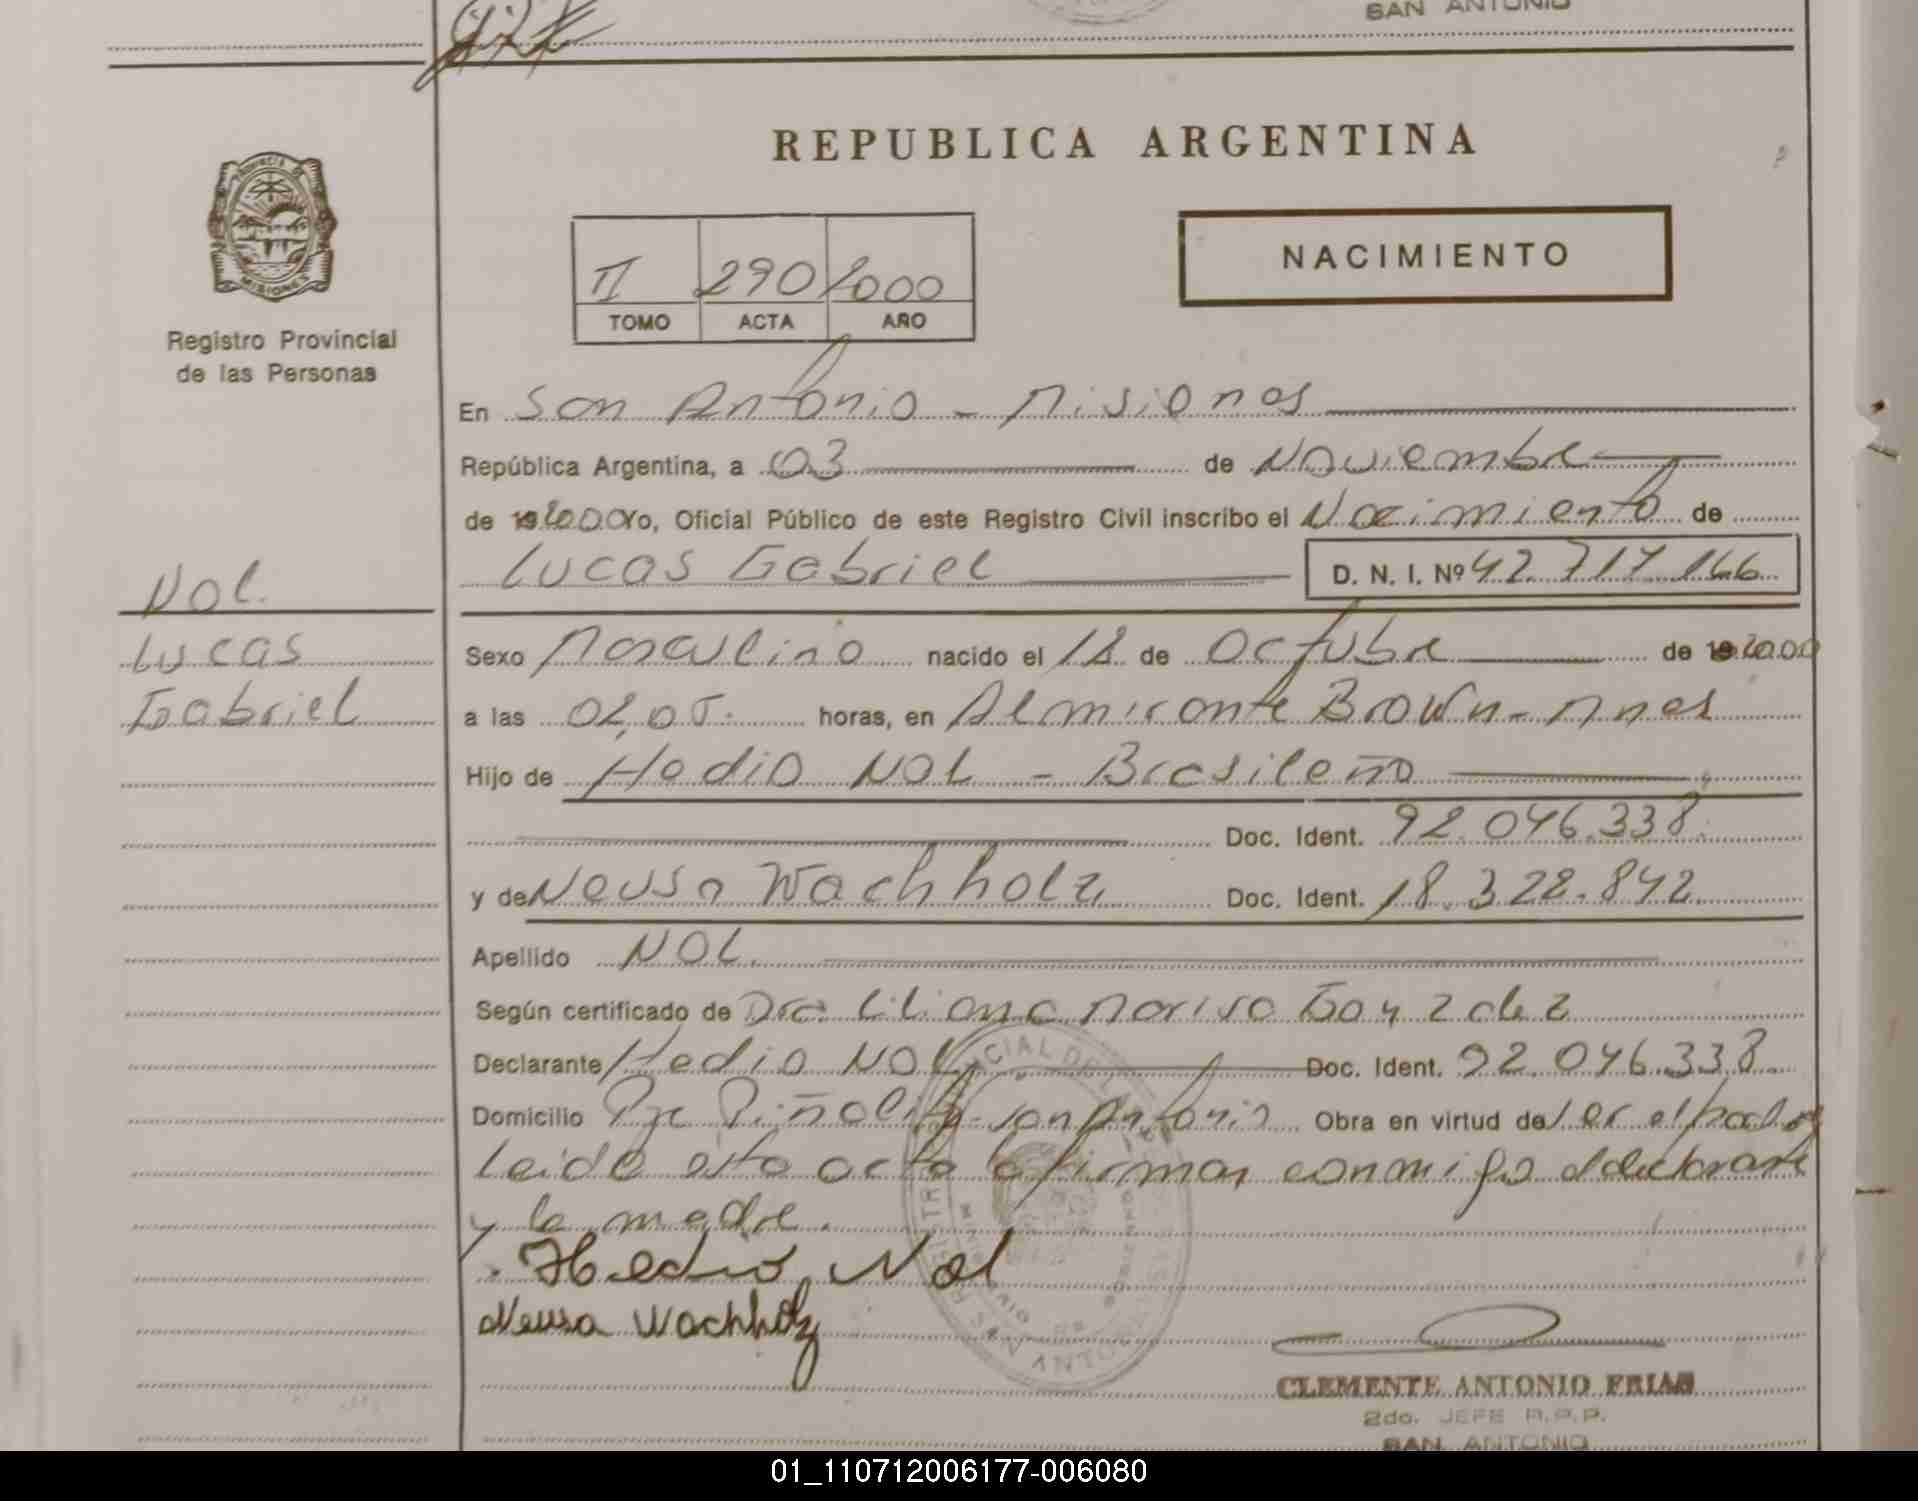 SAN ANTONIO
REPUBLICA ARGENTINA
PROVINCIA DE
MISIONES
Registro Provincial
de las Personas
II 290 2000
TOMO ACTA AÑO
NACIMIENTO
En San Antonio - Misiones
República Argentina, a 03 de Noviembre
de 192000 Yo, Oficial Público de este Registro Civil inscribo el Nacimiento de
Lucas Gabriel D. N. I. Nº 42.717.166
Nol.
Lucas
Gabriel
Sexo Masculino nacido el 18 de Octubre de 192000
a las 02,05. horas, en Almirante Brown - Mnes
Hijo de Hedio NOL - Brasileño
Doc. Ident. 92.046.338.
y de Neusa Wachholz Doc. Ident. 18.322.842
Apellido NOL.
Según certificado de Dra. Liliana Marisa
Declarante Hedio NOL Doc. Ident. 92.046.338
Domicilio Pje Piñalito - San Antonio Obra en virtud de ser el padre
leida esta acta la firman conmigo el declarante
y la madre.
Hedio Nol
Neusa Wachholz
CLEMENTE ANTONIO FRIAS
2do. JEFE R.P.P.
SAN ANTONIO
01_110712006177-006080